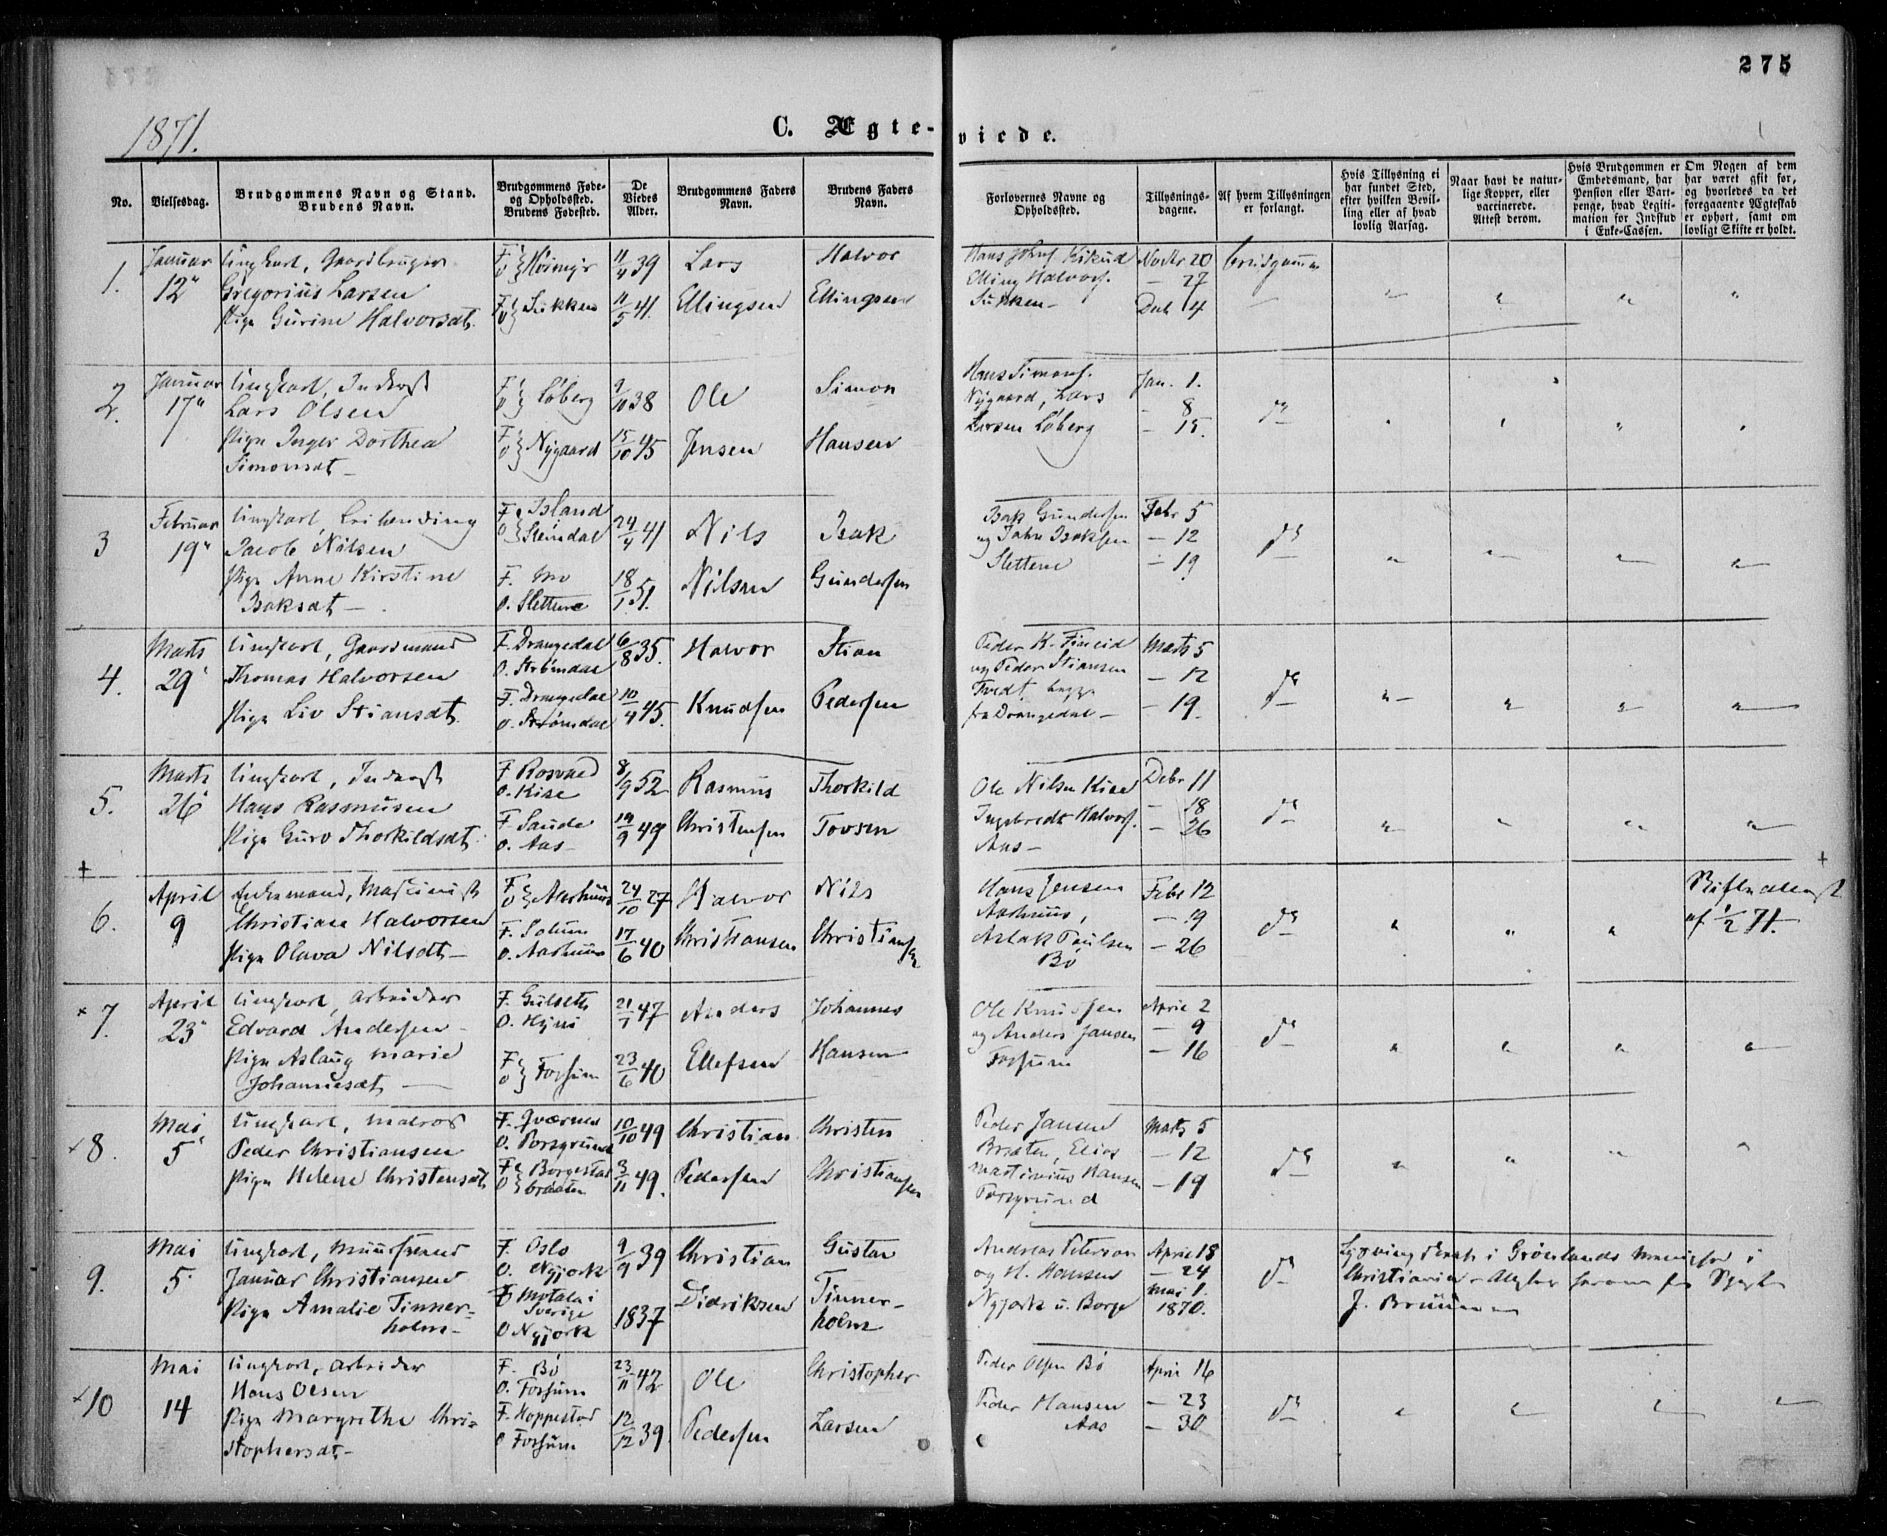 275
1871.
C. Ægte-viede.
No.
Vielsesdag.
Brudgommens Navn og Stand.
Brudens Navn.
Brudgommens Føde-
og Opholdssted.
Brudens Fødested.
De
Viedes
Alder.
Brudgommens Faders
Navn.
Brudens Faders
Navn.
Forlovernes Navne og
Opholdssted.
Tillysnings-
dagene.
Af hvem Tillysningen
er forlangt.
Hvis Tillysning ei
har fundet Sted,
efter hvilken Bevil-
ling eller af hvad
lovlig Aarsag.
Naar havt de natur-
lige Kopper, eller
vaccinerede.
Attest derom.
Hvis Brudgommen er
Embedsmand, har
Pension eller Vart-
penge, hvad Legiti-
mation for Indskud
i Enke-Cassen.
Om Nogen af dem
har været gift før,
og hvorledes da det
foregaaende Ægteskab
er ophørt, samt om
lovligt Skifte er holdt.
1.
Januar
12
Ungkarl, Gaardbruger
Gregorius Larsen
Pige Gurine Halvorsdt.
F.
O } Sukken
11/4 39
11/5 41.
Lars
Ellingsen
Halvor
Ellingsen
Elling Halvors.
Sukken
Novbr 20
— 27
Decb 4
Brudgommen
2.
Januar
17
Ungkarl, Inderst
Lars Olsen
Pige Inger Dorthea
Simonsdt
F
O } Løberg
F
O } Nygaard
9/10 38
15/10 45
Ole
Jensen
Simon
Hansen
Hans Simons.
Nygaard, Lars
Larsen Løberg
Jan. 1.
— 8
— 15.
do
3
Februar
19
Ungkarl,
Jacob Nilsen
Pige Anne Kirstine
Isaksdt
F. Island
F. Mo
O. Slettene
24/4 41
18/1 51.
Nils
Nilsen
Isak
Gundersen
Isak Gundersen
og John Isaksen
Slettene
Febr 5
— 12
— 19
do
4.
Marts
29
Ungkarl, Gaardmand
Thomas Halvorsen
Pige Liv Stiansdt.
F. Drangedal
O. Strömdal
F. Drangedal
O. Strömdal
6/8 35.
10/4 45.
Halvor
Knudsen
Stian
Pedersen
Peder K.
og Peder Stiansen
Tvedt, begge
fra Drangedal
Marts 5
— 12
— 19.
do
5.
Marts
26
Ungkarl, Inderst
Hans Rasmusen
Pige Guro Thorkildsdt.
F.
O. Kise
F. Saude
O. Aas
8/9 52
19/9 49
Rasmus
Christensen
Thorkild
Tovsen
Ole Nilsen Kise
Ingebredt Halvors.
Aas
Debr 11
— 18
— 26
do
6.
April
9
Enkemand, Maskinist
Christian Halvorsen
Pige Olava Nilsdt
F
O } Aarhuus
F. Solum
O. Aarhuus
24/10 27
17/6 40
Halvor
Christiansen
Nils
Christiansen
Hans Jensen
Aarhuus,
Aslak Poulsen
Bö
Febr 12
— 19
— 26
do
af 1/2 71.
7.
April
23
Ungkarl, Arbeider
Edvard Andersen
Pige Aslaug Marie
Johannesdt
F. Gulseth
O.
F
O } Fossum
21/1 47
23/6 40
Anders
Ellefsen
Johannes
Hansen
Ole Knudsen
og Anders Jansen
Fossum
April 2
— 9
— 16
do
8.
Mai
5
Ungkarl, Matros
Peder Christiansen
Pige Helene Christensdt
F.
O. Porsgrund
F } Borgestad
O } braaten
10/10 49
3/11 49.
Christian
Pedersen
Christen
Christiansen
Peder Jansen
Braaten, Elias
Martinius Hansen
Porsgrund
Marts 5
— 12
— 19
do
9.
Mai
5
Ungkarl, Muursvend
Januar Christiansen
Pige Amalie Tinner-
holm
F. Oslo
O. Nyjork
F Motala i
Sverige
O Nyjork
9/9 39
1837
Christian
Didriksen
Gustav
Tinner-
holm
Andreas Peterson
og H. Hansen
Nyjork u. Borge
April 18
— 24
Mai 1.
1870.
do
Lysning i Grönlands Menighed i
Christiania
J. Bruun
10
Mai
14
Ungkarl, Arbeider
Hans Olsen
Pige Margrethe Chri-
stophersdt
F. Bö
O. Fossum
F. Hoppestad
O Fossum
23/11 42
12/12 39
Ole
Pedersen
Christopher
Larsen
Peder Olsen Bö
Peder Hansen
Aas
April 16
— 23
— 30
do